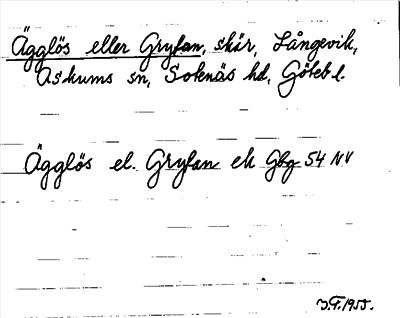 Ägglös eller Grytan, skär, Långevik,
Askums sn, Sotenäs hd, Göteb l.
Ägglös el. Grytan ek Gbg 54 NV
J.F. 1955.